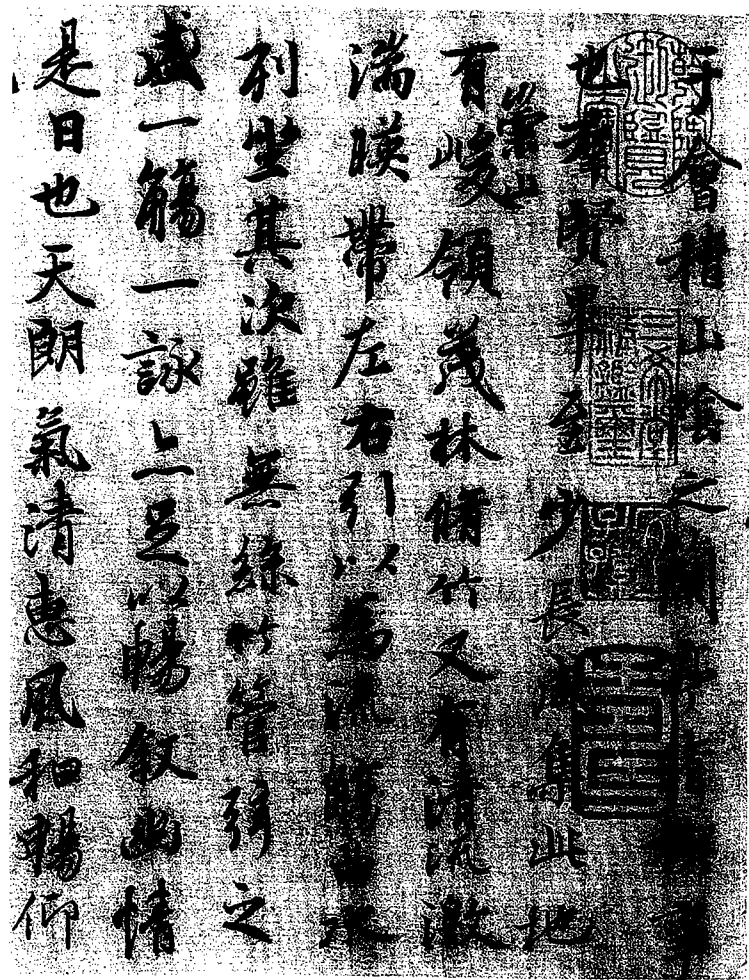 于會稽山陰之蘭亭脩禊事
也羣賢畢至少長咸集此地
有崇山峻領茂林脩竹又有清流激
湍暎帶左右引以為流觴曲水
列坐其次雖無絲竹管弦之
盛一觴一詠亦足以暢叙幽情
是日也天朗氣清惠風和暢仰